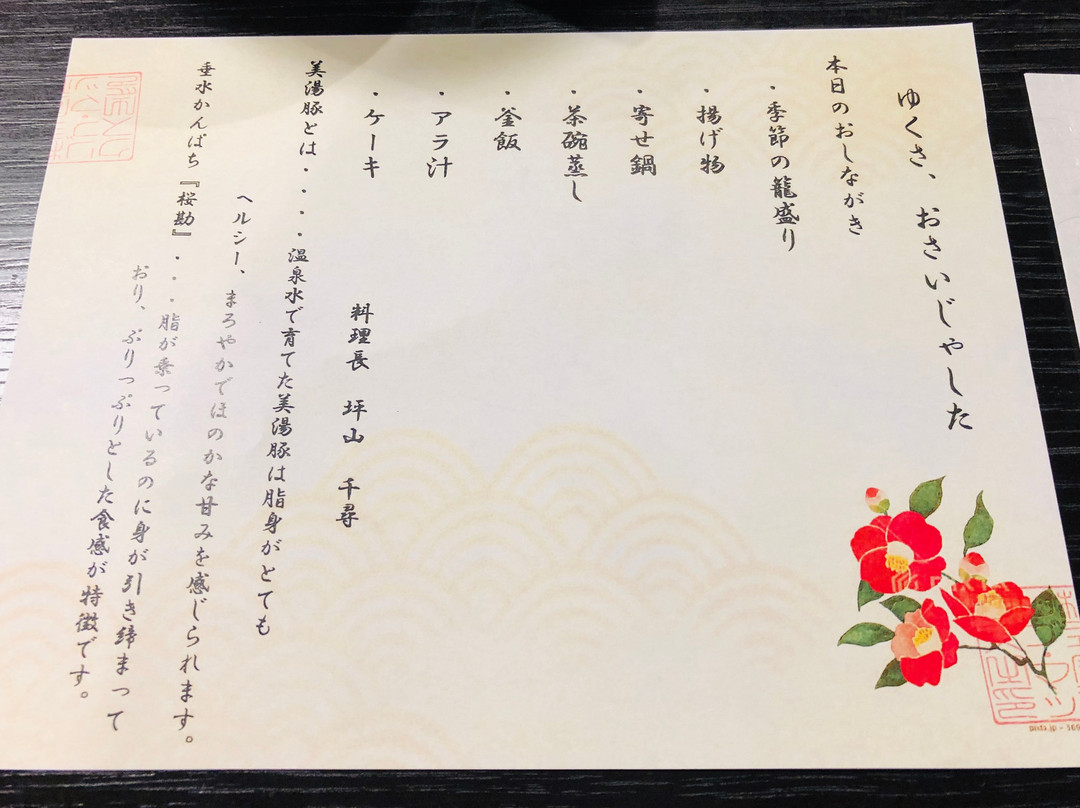 ゆくさ、おさいじゃした
本日のおしながき
・季節の籠盛り
・揚げ物
・寄せ鍋
・茶碗蒸し
・釜飯
・アラ汁
・ケーキ
料理長 坪山 千尋
美湯豚とは・・・・温泉水で育てた美湯豚は脂身がとても
ヘルシー、まろやかでほのかな甘みを感じられます。
垂水かんぱち『桜勘』・・・脂が乗っているのに身が引き締まって
おり、ぷりっぷりとした食感が特徴です。